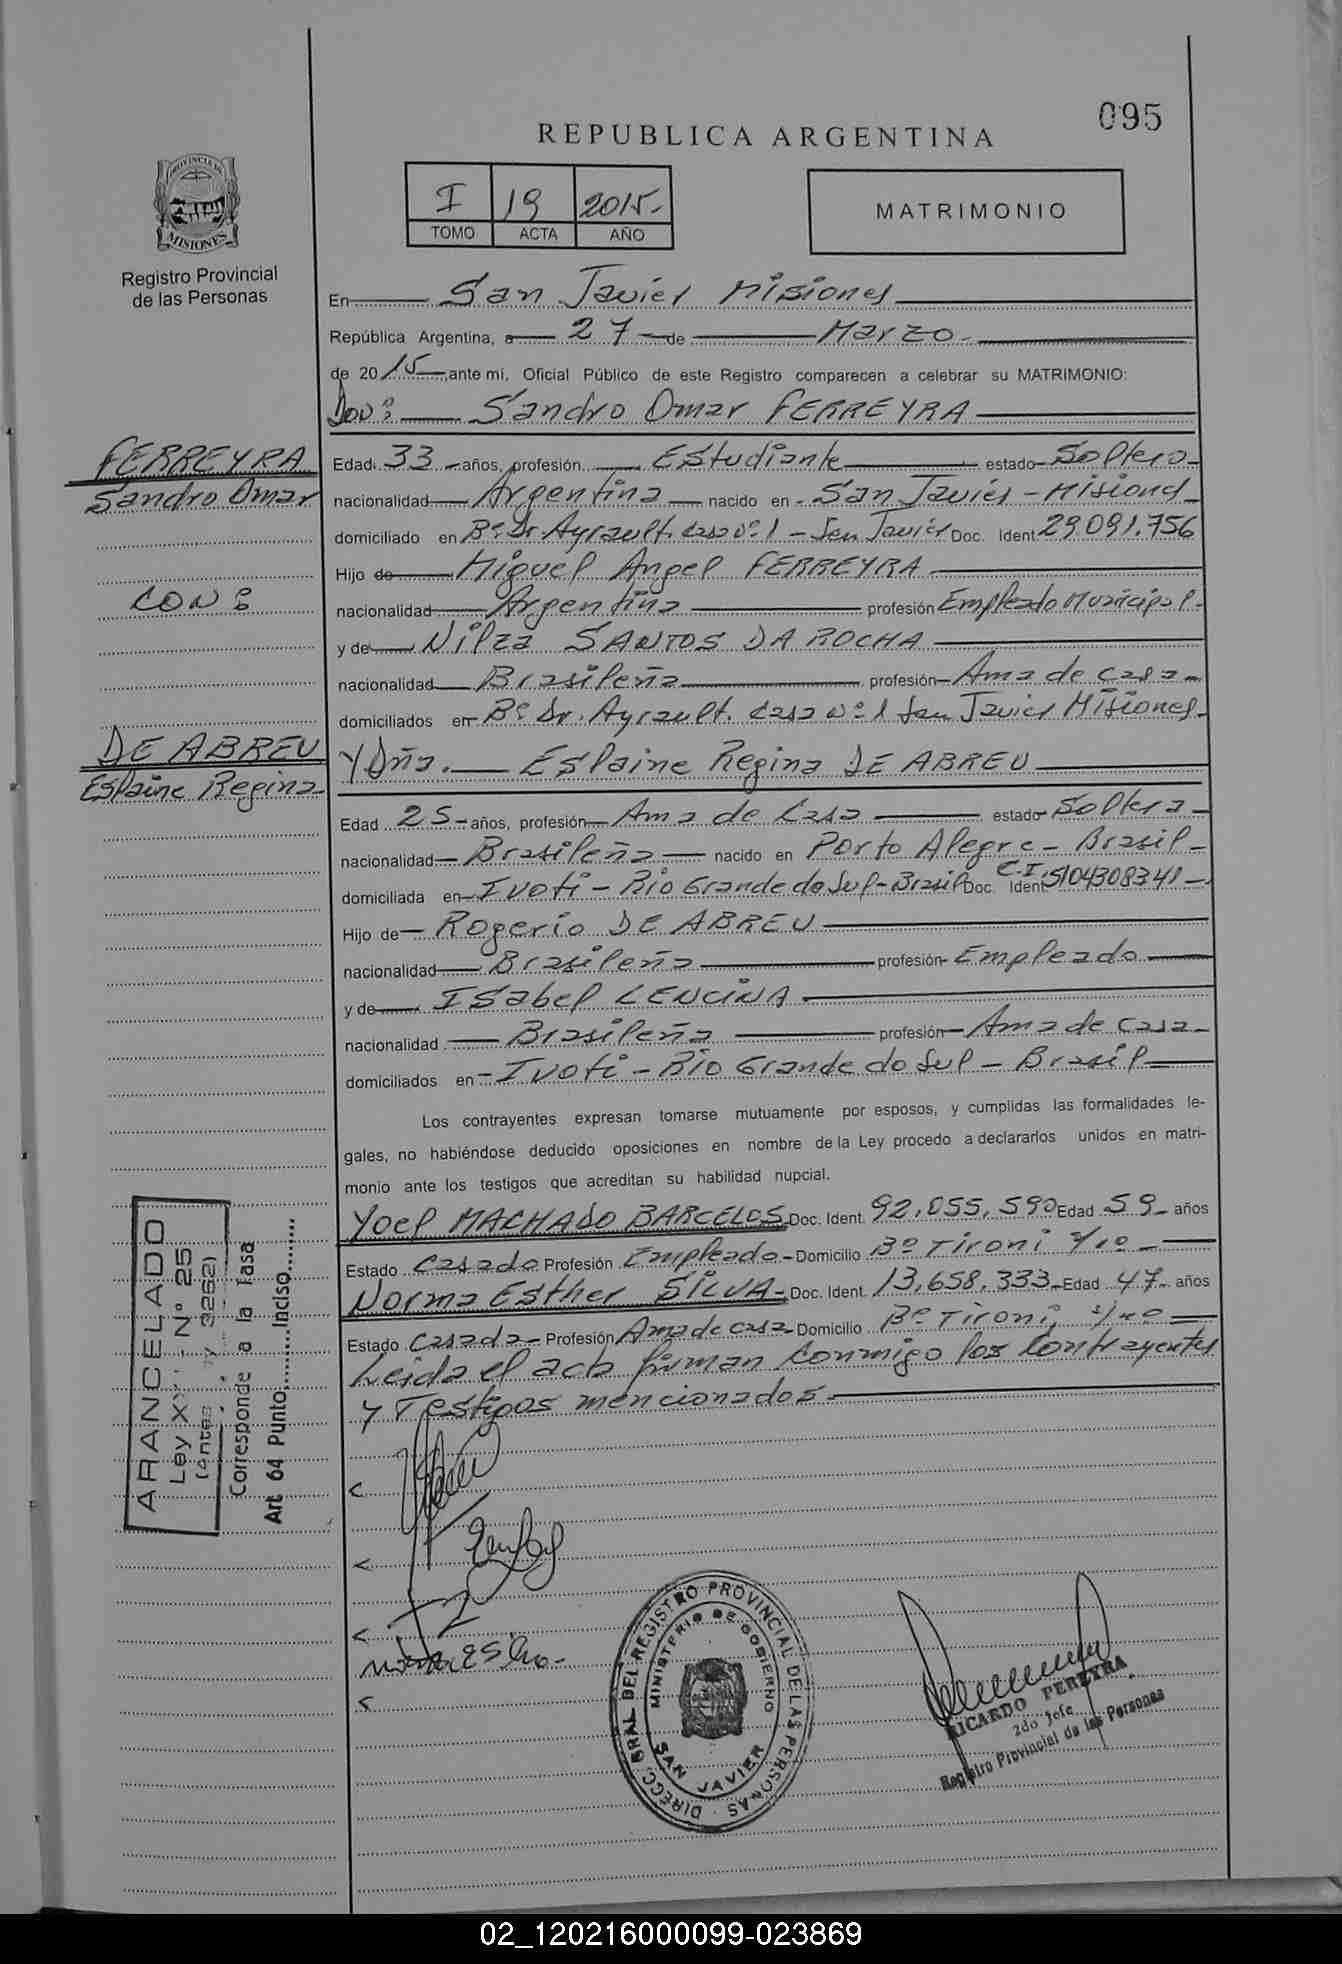 095
REPUBLICA ARGENTINA
PROVINCIA DE
MISIONES
Registro Provincial
de las Personas
I 19 2015.-
TOMO ACTA AÑO
MATRIMONIO
En San Javier Misiones
República Argentina, a 27 de Marzo.-
de 2015 ,ante mi, Oficial Público de este Registro comparecen a celebrar su MATRIMONIO:
Don: Sandro Omar FERREYRA
FERREYRA
Sandro Omar
CON:
DE ABREU
Eslaine Regina
Edad 33 años, profesión Estudiante estado Soltero
nacionalidad Argentina nacido en San Javier - Misiones
domiciliado en Bº Dr. Ayrault. casa nº 1 - San Javier Doc. Ident 29.091.756
Hijo de Miguel Angel FERREYRA
nacionalidad Argentina profesión Empleado Municipal.
y de Nilza SANTOS DA ROCHA
nacionalidad Brasileña profesión Ama de casa
domiciliados en Bº Dr. Ayrault. casa nº 1 San Javier Misiones
Y Dña. Eslaine Regina DE ABREU
Edad 25 años, profesión Ama de Casa estado Soltera
nacionalidad Brasileña nacido en Porto Alegre - Brasil
domiciliada en Ivoti - Rio Grande do Sul - Brasil Doc. Ident C.I. 5104308341
Hijo de Rogerio DE ABREU
nacionalidad Brasileña profesión Empleado
y de Isabel LENCINA
nacionalidad Brasileña profesión Ama de casa
domiciliados en Ivoti - Rio Grande do Sul - Brasil
Los contrayentes expresan tomarse mutuamente por esposos, y cumplidas las formalidades le-
gales, no habiéndose deducido oposiciones en nombre de la Ley procedo a declararlos unidos en matri-
monio ante los testigos que acreditan su habilidad nupcial.
Yoel MACHADO BARCELOS Doc. Ident. 92.055.590 Edad 59 años
Estado Casado Profesión Empleado Domicilio Bº Tironi
Norma Esther SILVA Doc. Ident. 13.658.333 Edad 47 años
Estado Casada Profesión Ama de casa Domicilio Bº Tironi,
Leida el acta firman conmigo los contrayentes
y Testigos mencionados
ARANCELADO
Ley - Nº 25
(Antes 3262)
Corresponde a la Tasa
Art. 64 Punto..........Inciso..........
DIRECC. GRAL DEL REGISTRO PROVINCIAL DE LAS PERSONAS
MINISTERIO DE GOBIERNO
SAN JAVIER
RICARDO PEREYRA
2do Jefe
Registro Provincial de las Personas
02_120216000099-023869